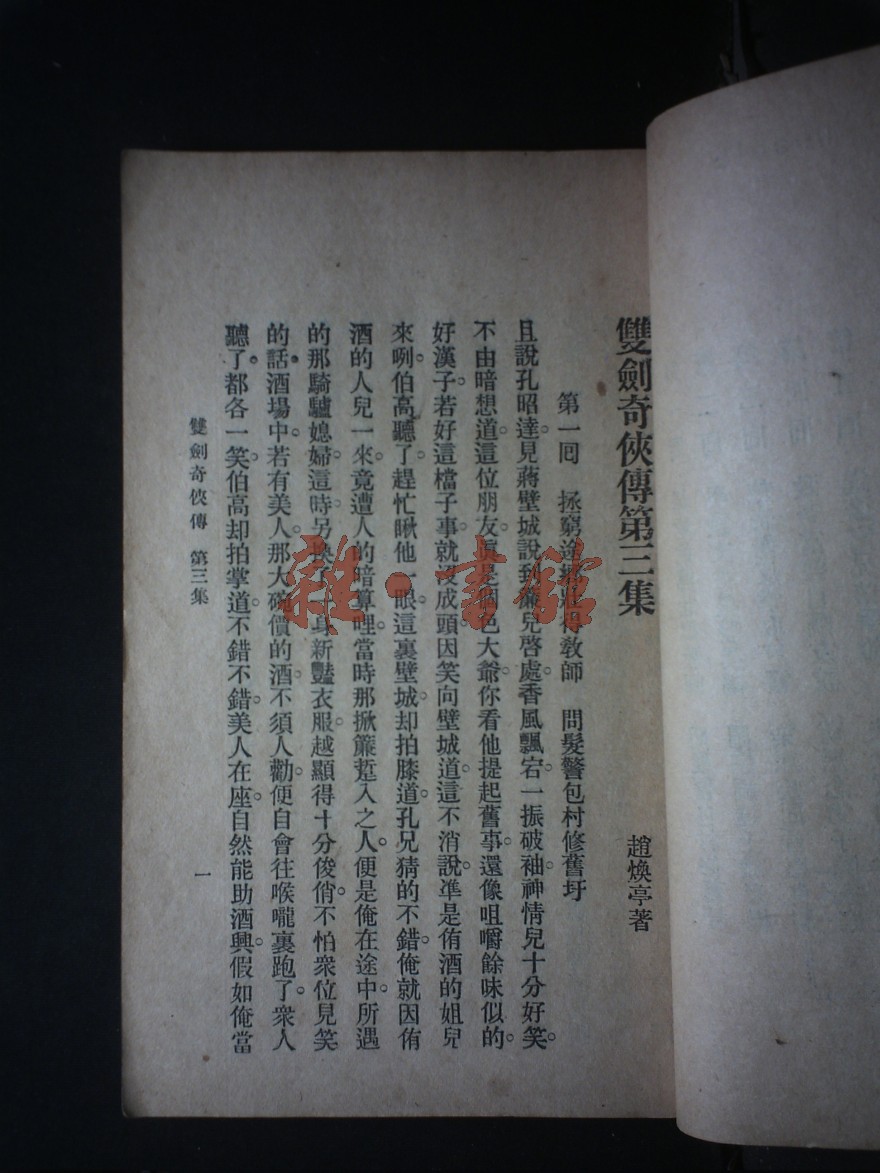 雙劍奇俠傳第三集
趙煥亭著
第一囘　拯窮途　得敎師　問髮警包村修舊圩
且說孔昭達見蔣壁城說到簾兒啓處香風飄宕一振破袖神情兒十分好笑。
不由暗想道這位朋友眞是個色大爺你看他提起舊事還像咀嚼餘味似的。
好漢子若好這檔子事就沒成頭因笑向壁城道這不消說準是侑酒的姐兒
來咧伯高聽了趕忙瞅他一眼這裏壁城却拍膝道孔兄猜的不錯俺就因侑
酒的人兒一來竟遭人的暗算哩當時那掀簾踅入之人便是俺在途中所遇
的那騎驢媳婦這時另換了一身新豔衣服越顯得十分俊俏不怕衆位見笑
的話酒場中若有美人那大碗價的酒不須人勸便自會往喉嚨裏跑了衆人
聽了都各一笑伯高却拍掌道不錯不錯美人在座自然能助酒興假如俺當
雙劍奇俠傳　第三集
一
雜·書館